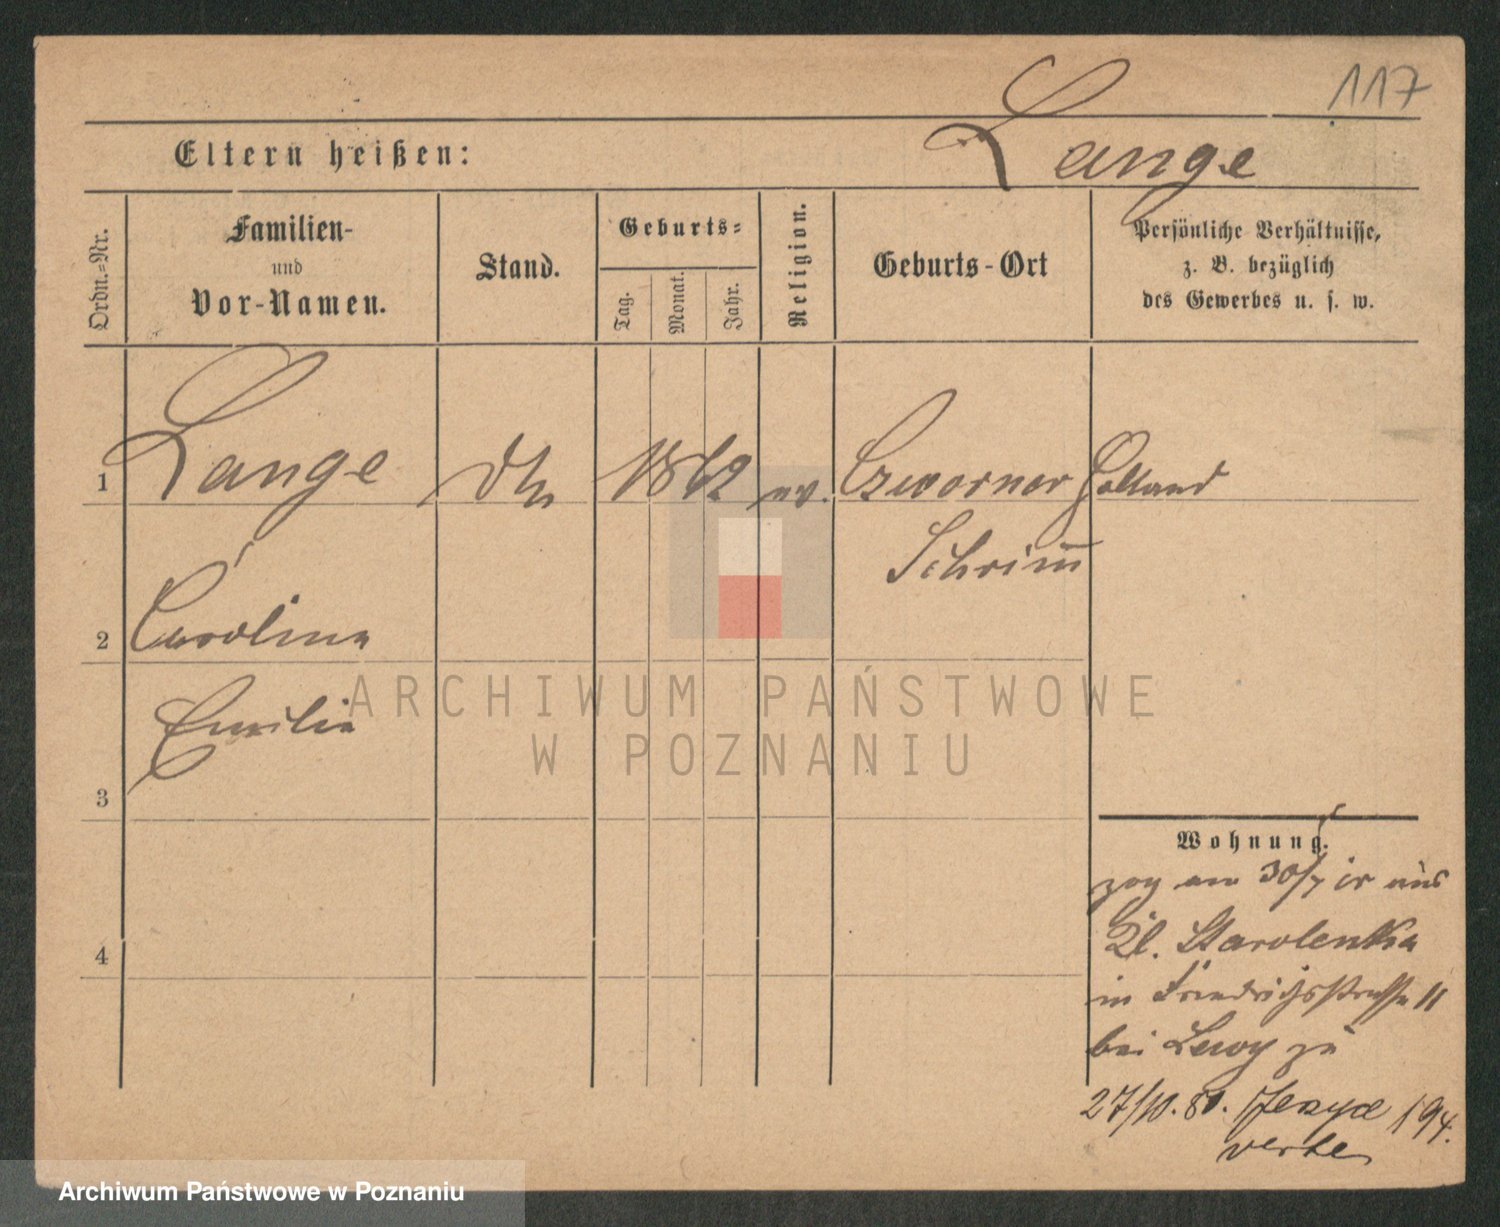 117
Lange
Eltern heißen:
Ordn.-Nr.
Familien-
und
Vor-Namen.
Stand.
Geburts-
Tag.
Monat.
Jahr.
Religion.
Geburts-Ort
Persönliche Verhältnisse,
z. B. bezüglich
des Gewerbes u. s. w.
1
Lange
1862
ev.
Czwornor
Holland
Schrimm
2
Carolina
Emilie
3
4
Wohnung.
zog am 30/7 aus
Kl. Starolenka
in Friedrichsstrasse 11
bei Levy zu
27/10. 80. Jerzyce 194.
ARCHIWUM PAŃSTWOWE
W POZNANIU
Archiwum Państwowe w Poznaniu